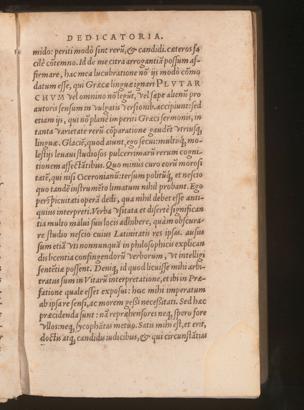 DEDICATORIA.
mido: periti modò sint rerũ, & candidi. cæteros fa
cilè cõtemno. Id de me citra arrogantiã possum af-
firmare, hac mea lucubratione nõ ijs modò cõmo
datum esse, qui Græcæ linguæ ignari PLUTAR
CHUM vel omnino nõ legũt, vel sæpe alienũ pro
autoris sensum in vulgatis versionib. accipiunt: sed
etiam ijs, qui nõ planè im periti Græci sermonis, in
tanta varietate rerũ cõparatione gaudẽt vtriusq́,
linguæ. Glaciẽ, quod aiunt, ego secui: multúq́, mo-
lestijs leuaui studiosos pulcerrimarũ rerum cogni-
tionem affectãtibus. Quo minus curo eorũ morosi
tatẽ, qui nisi Ciceronianũ: tersum politũq́, et nescio
quo tandẽ instrumẽto limatum nihil probant. Ego
perspicuitati operã dedi, qua nihil debet esse anti-
quius interpreti. Verba vsitata et disertè significan
tia multo malui suis locis adhibere, quàm obscura-
re studio nescio cuius Latinitatis res ipsas. ausus
sum etiã vti nonnunquã in philosophicis explican
dis licentia confingendorũ verborum, vt intelligi
sentẽtiæ possent. Deniq́, id quod licuisse mihi arbi-
tratus sum in Vitarũ interpretatione, et ibi in Præ-
fatione quale esset exposui: huc mihi imperatum
ab ipsare sensi, ac morem gessi necessitati. Sed hæc
præcidenda sunt: nã reprahensores neq́, spero fore
vllos: neq́, lycophãtas metuo. Satis mihi est, et erit,
doctis atq́, candidis iudicibus, & qui circunstãtias